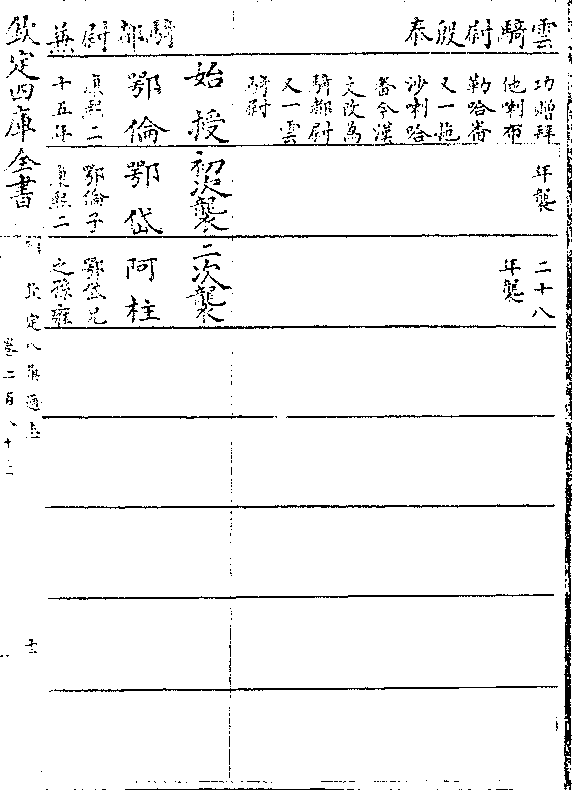 雲騎尉殷泰
功贈拜
他喇布
勒哈番
又一拖
沙喇哈
番今漢
文改為
騎都尉
又一雲
騎尉
年襲
二十八
年襲
騎都尉兼
始授
鄂倫
康熙二
十五年
初次襲
鄂岱
鄂倫子
康熙二
二次襲
阿柱
鄂岱兄
之孫雍
欽定四庫全書
欽定八旗通志
卷二百八十二